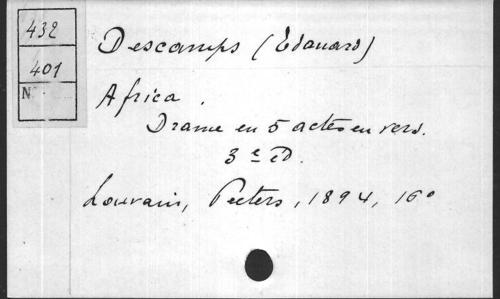 432
401
N°
Descamps (Edouard)
Africa.
Drame en 5 actes en vers.
3e éd.
Louvain, Peeters, 1894, 16°